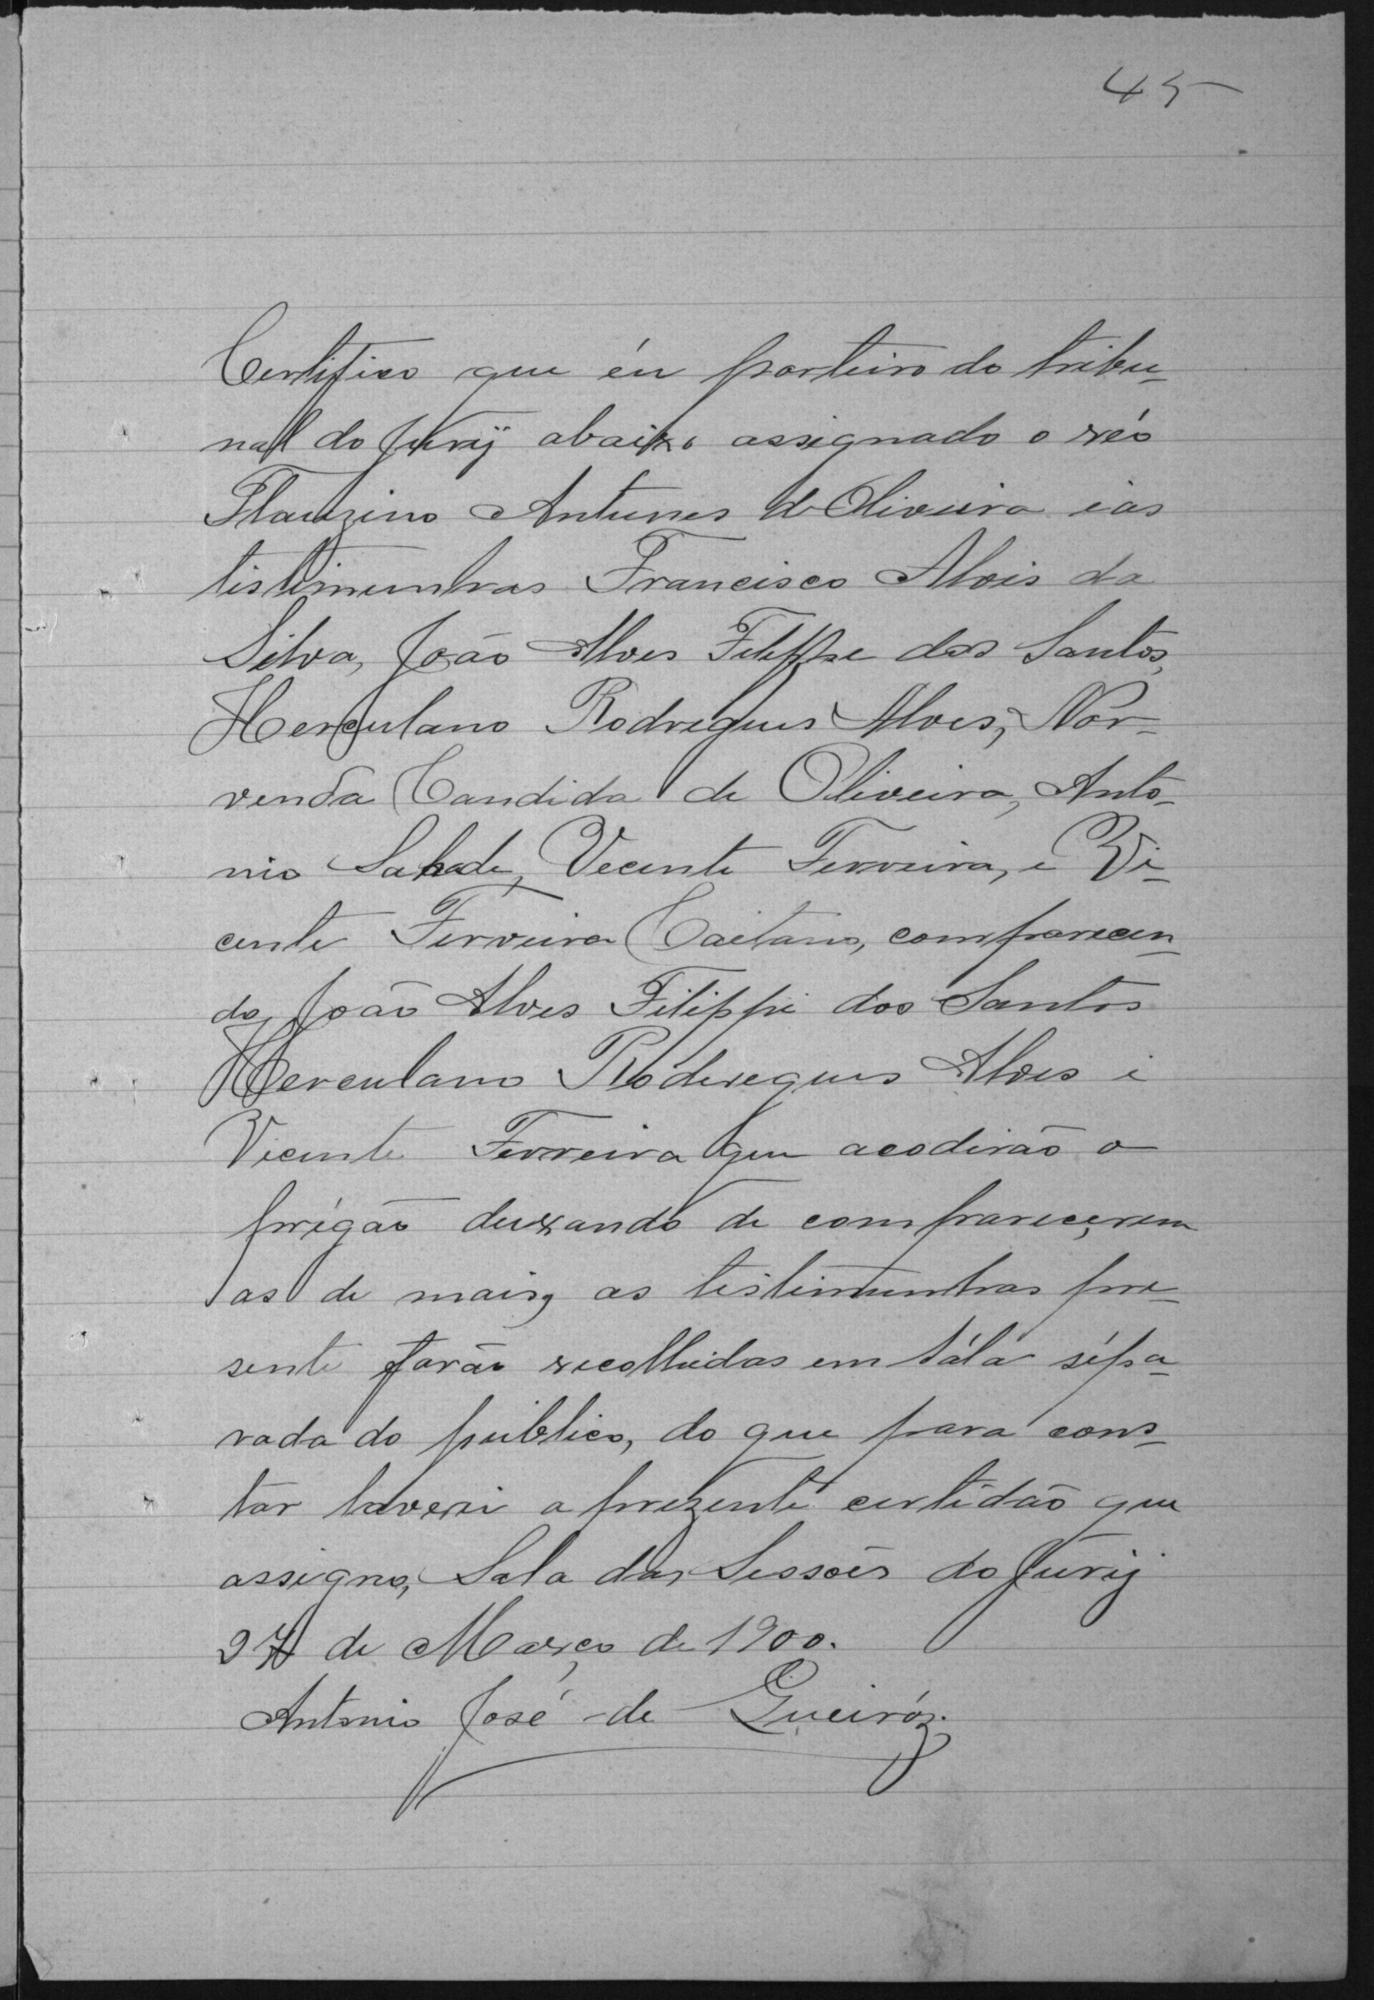 45
Certifico que éu porteiro do tribu-
nal do Jury abaixo assignado o réo
Flauzino Antunes de Oliveira i as
tistimunhas Francisco Alvis da
Silva, João Alves Felippe dos Santos,
Herculano Rodregues Alves, Nor-
venda Candida de Oliveira, Anto-
nio Sahade, Vecente Ferreira, e Vi-
cente Ferreira Caetano, comparecen-
do, João Alves Filippi dos Santos
Herculano Roderegues Alves i
Vicente Ferreira que acodirão o
prégão deixando de comparecerem
as de mais, as tistimunhas pre-
sente forão recolhidas em sála sépa-
rada do publico, do que para cons-
tar lavrei a prezente certidão que
assigno, Sala das Sessões do Jury
27 de Março de 1900.
Antonio José de Queiróz.